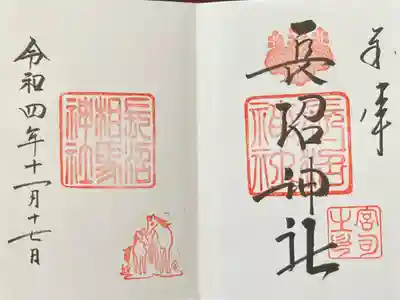 奉拝
長沼神社
長沼
神社
宮司
之印
長沼
相馬
神社
令和四年十一月十七日